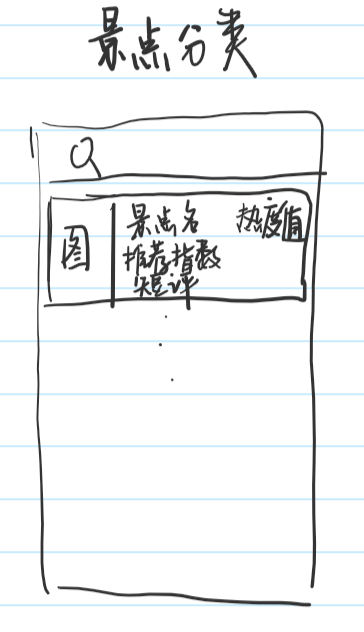 景点分类
图
景点名 热度值
推荐指数
短评